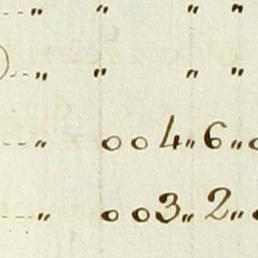 " " " "
" " " "
" 0 0 4 " 6 " 0
" 0 0 3 " 2 " 0